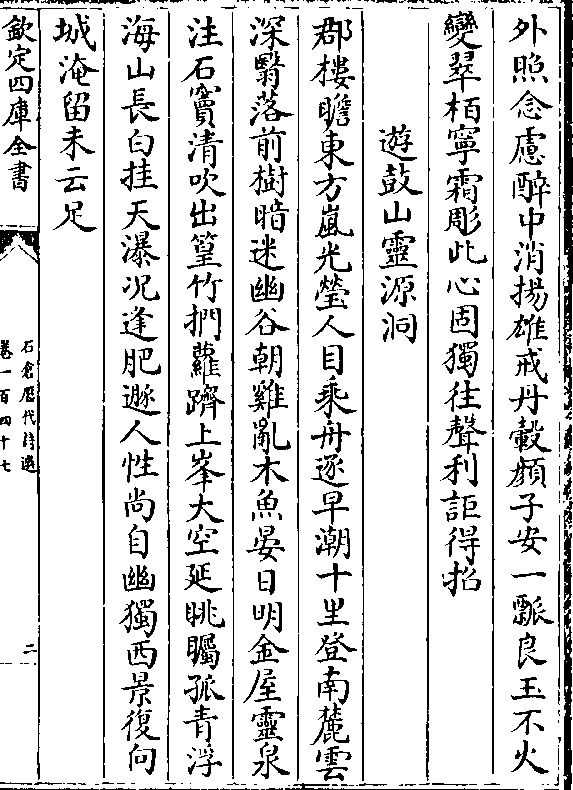 外照念慮醉中消揚雄戒丹轂顔子安一瓢良玉不火
變翠栢寧霜彫此心固獨往聲利詎得招
遊鼓山靈源洞
郡樓瞻東方嵐光瑩人目乘舟逐早潮十里登南麓雲
深翳落前樹暗迷幽谷朝雞亂木魚晏日明金屋靈泉
注石竇清吹出篁竹捫蘿躋上峯大空延眺矚孤青浮
海山長白挂天瀑况逢肥遯人性尚自幽獨西景復向
城淹留未云足
欽定四庫全書
石倉歷代詩選
卷一百四十七
二